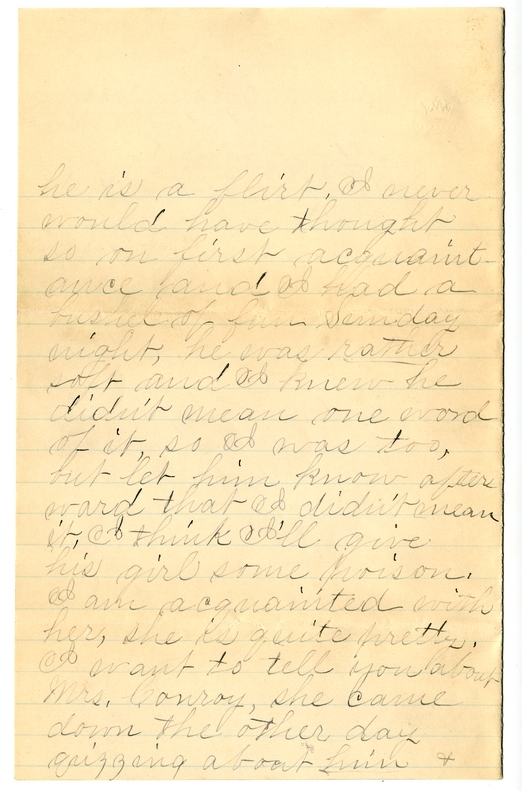 he is a flirt. I never
would have thought
so on first acquaint-
ance and I had a
bushel of fun Sunday
night, he was rather
soft and I knew he
didn't mean one word
of it, so I was too,
but let him know after
ward that I didn't mean
it. I think I'll give
his girl some poison.
I am acquainted with
her, she is quite pretty.
I want to tell you about
Mrs. Conroy, she came
down the other day
quizzing about him +